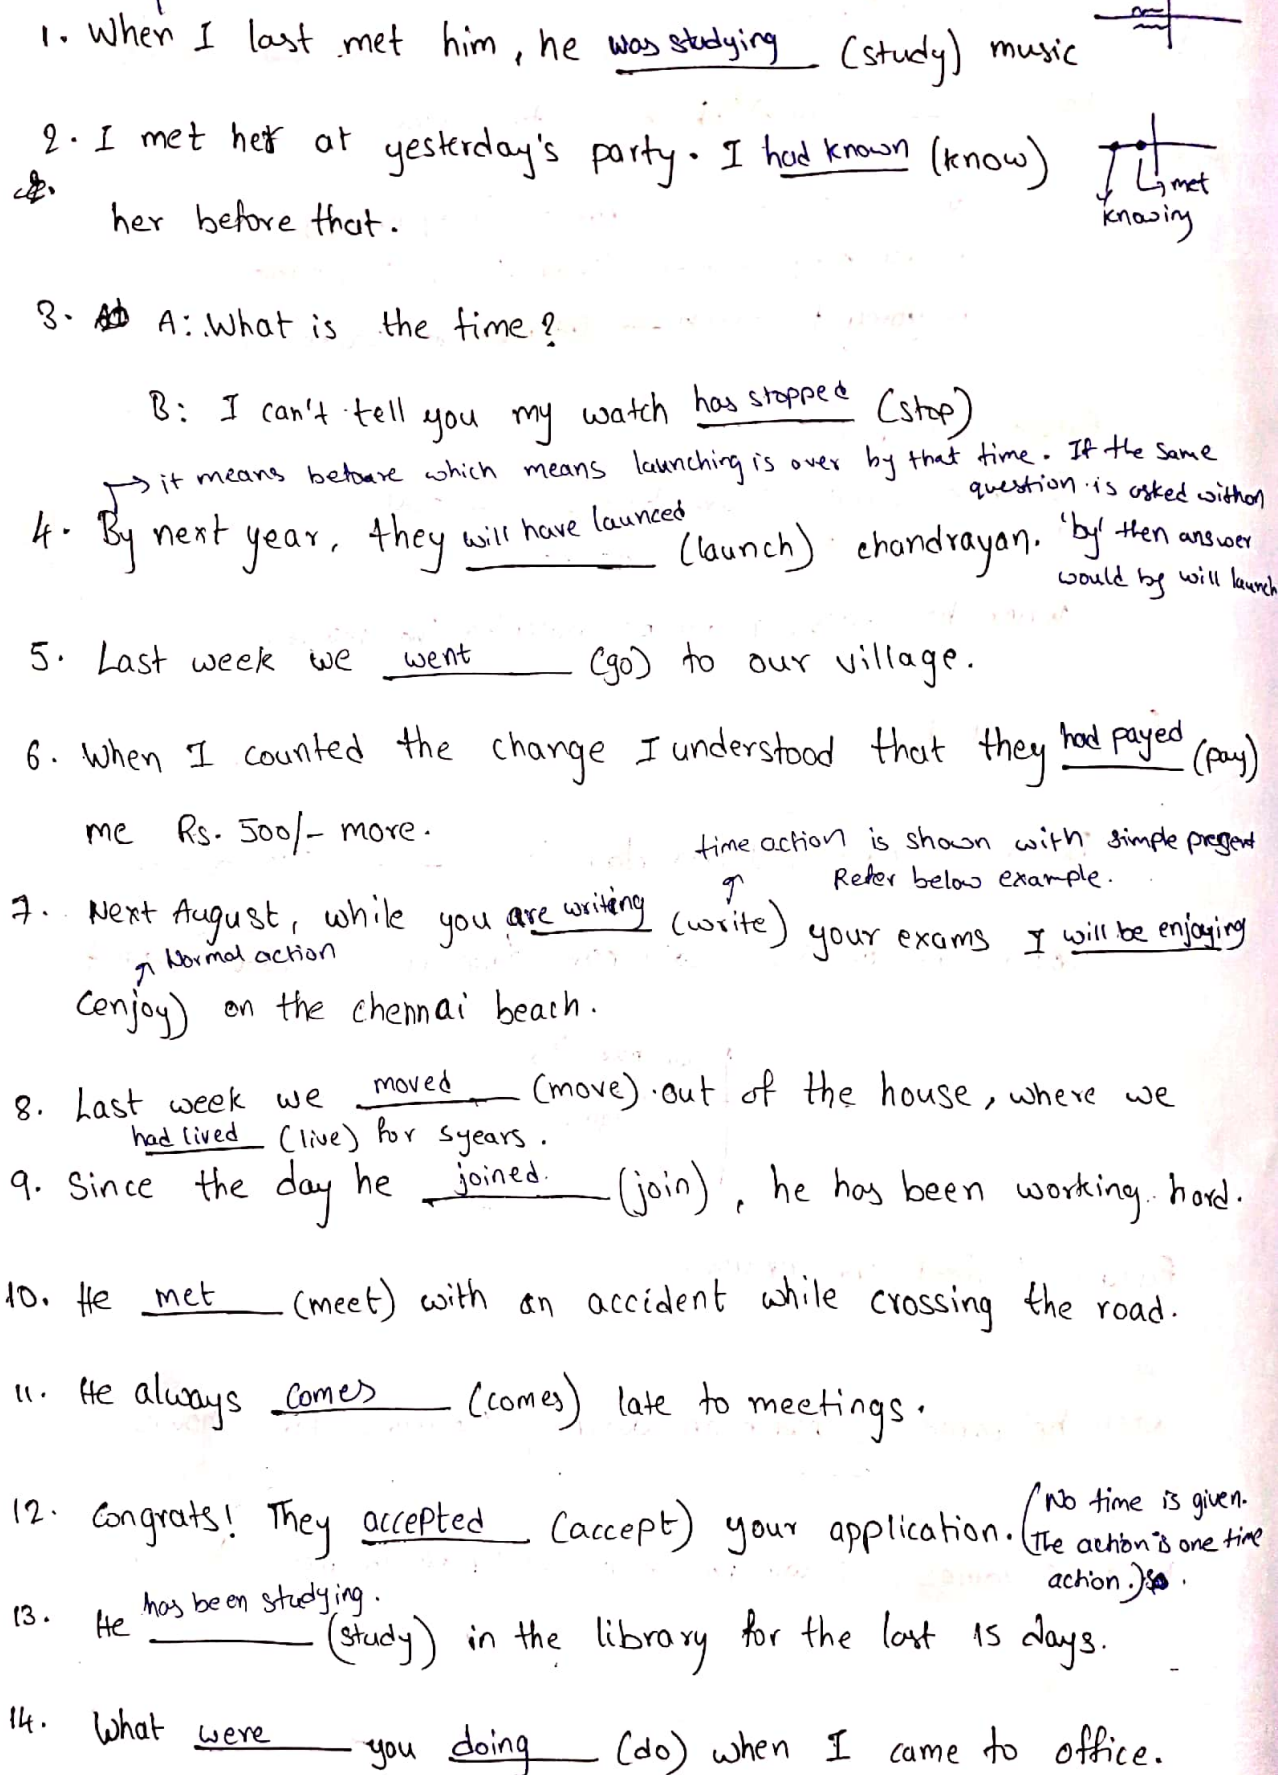 1. When I last met him, he was studying (study) music
2. I met her at yesterday's party. I had known (know)
met
her before that.
knowing
3. A: What is the time?
B: I can't tell you my watch has stopped (stop)
it means before which means launching is over by that time. If the same
question is asked without
4. By next year, they will have launced (launch) chandrayan. 'by' then answer
would be will launch
5. Last week we went (go) to our village.
6. When I counted the change I understood that they had payed (pay)
me Rs. 500/- more.
time action is shown with simple present
Refer below example.
7. Next August, while you are writing (write) your exams I will be enjoying
Normal action
(enjoy) on the chennai beach.
8. Last week we moved (move) out of the house, where we
had lived (live) for 5years.
9. Since the day he joined. (join), he has been working hard.
10. He met (meet) with an accident while crossing the road.
11. He always comes (comes) late to meetings.
12. Congrats! They accepted (accept) your application. (No time is given.
The action is one time
action.)
13. He has been studying. (study) in the library for the last 15 days.
14. What were you doing (do) when I came to office.